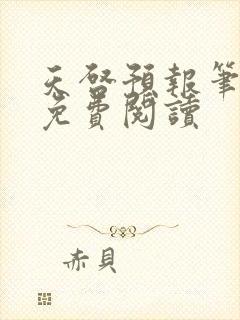 天啓預報筆
免費閱讀
赤貝